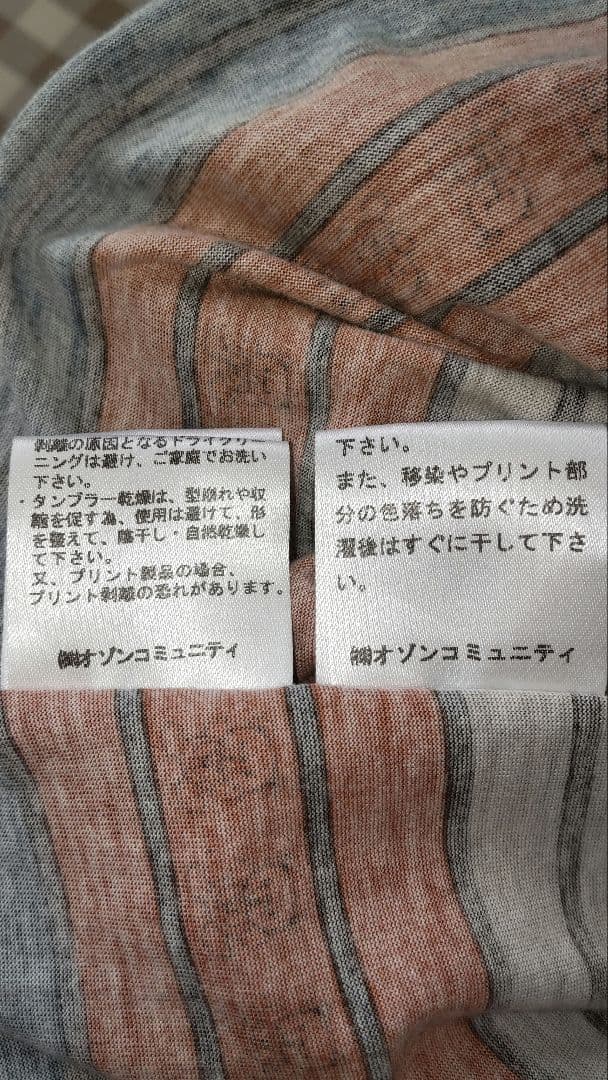 剥離の原因となるドライクリー
ニングは避け、ご家庭でお洗い
下さい。
・タンブラー乾燥は、型崩れや収
縮を促す為、使用は避けて、形
を整えて、陰干し・自然乾燥し
て下さい。
又、プリント製品の場合、
プリント剥離の恐れがあります。
㈱オゾンコミュニティ
下さい。
また、移染やプリント部
分の色落ちを防ぐため洗
濯後はすぐに干して下さ
い。
㈱オゾンコミュニティ